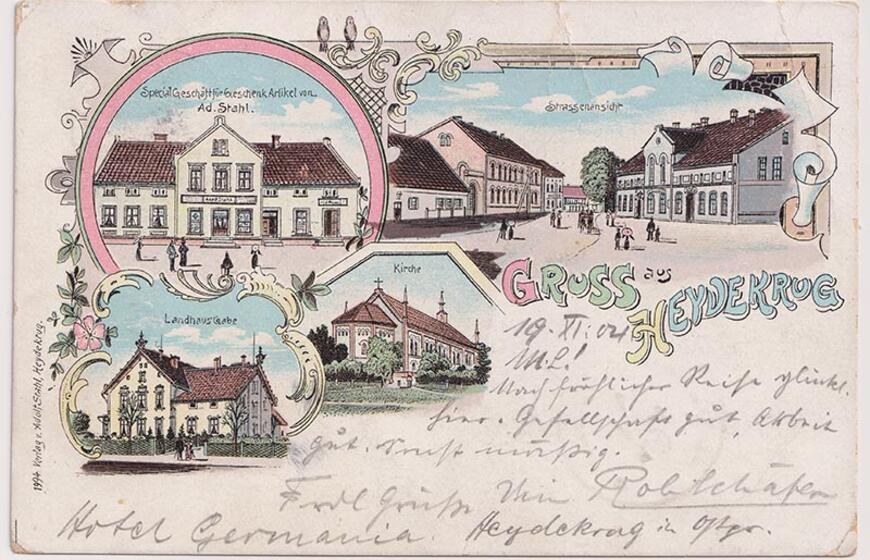 Special Geschäft für Geschenk Artikel von
Ad. Stahl.
Strassenansicht
Kirche
Landhaus Gabe
GRUSS aus
HEYDEKRUG
19. XI. 04
M. L.!
Nach fröhlicher Reise glückl.
hier. Gesellschaft gut, Arbeit
gut. Sonst mäßig.
Frdl Grüße Dein Rob Schäfer
Hotel Germania. Heydekrug in Ostpr.
1994 Verlag v. Adolf Stahl, Heydekrug.